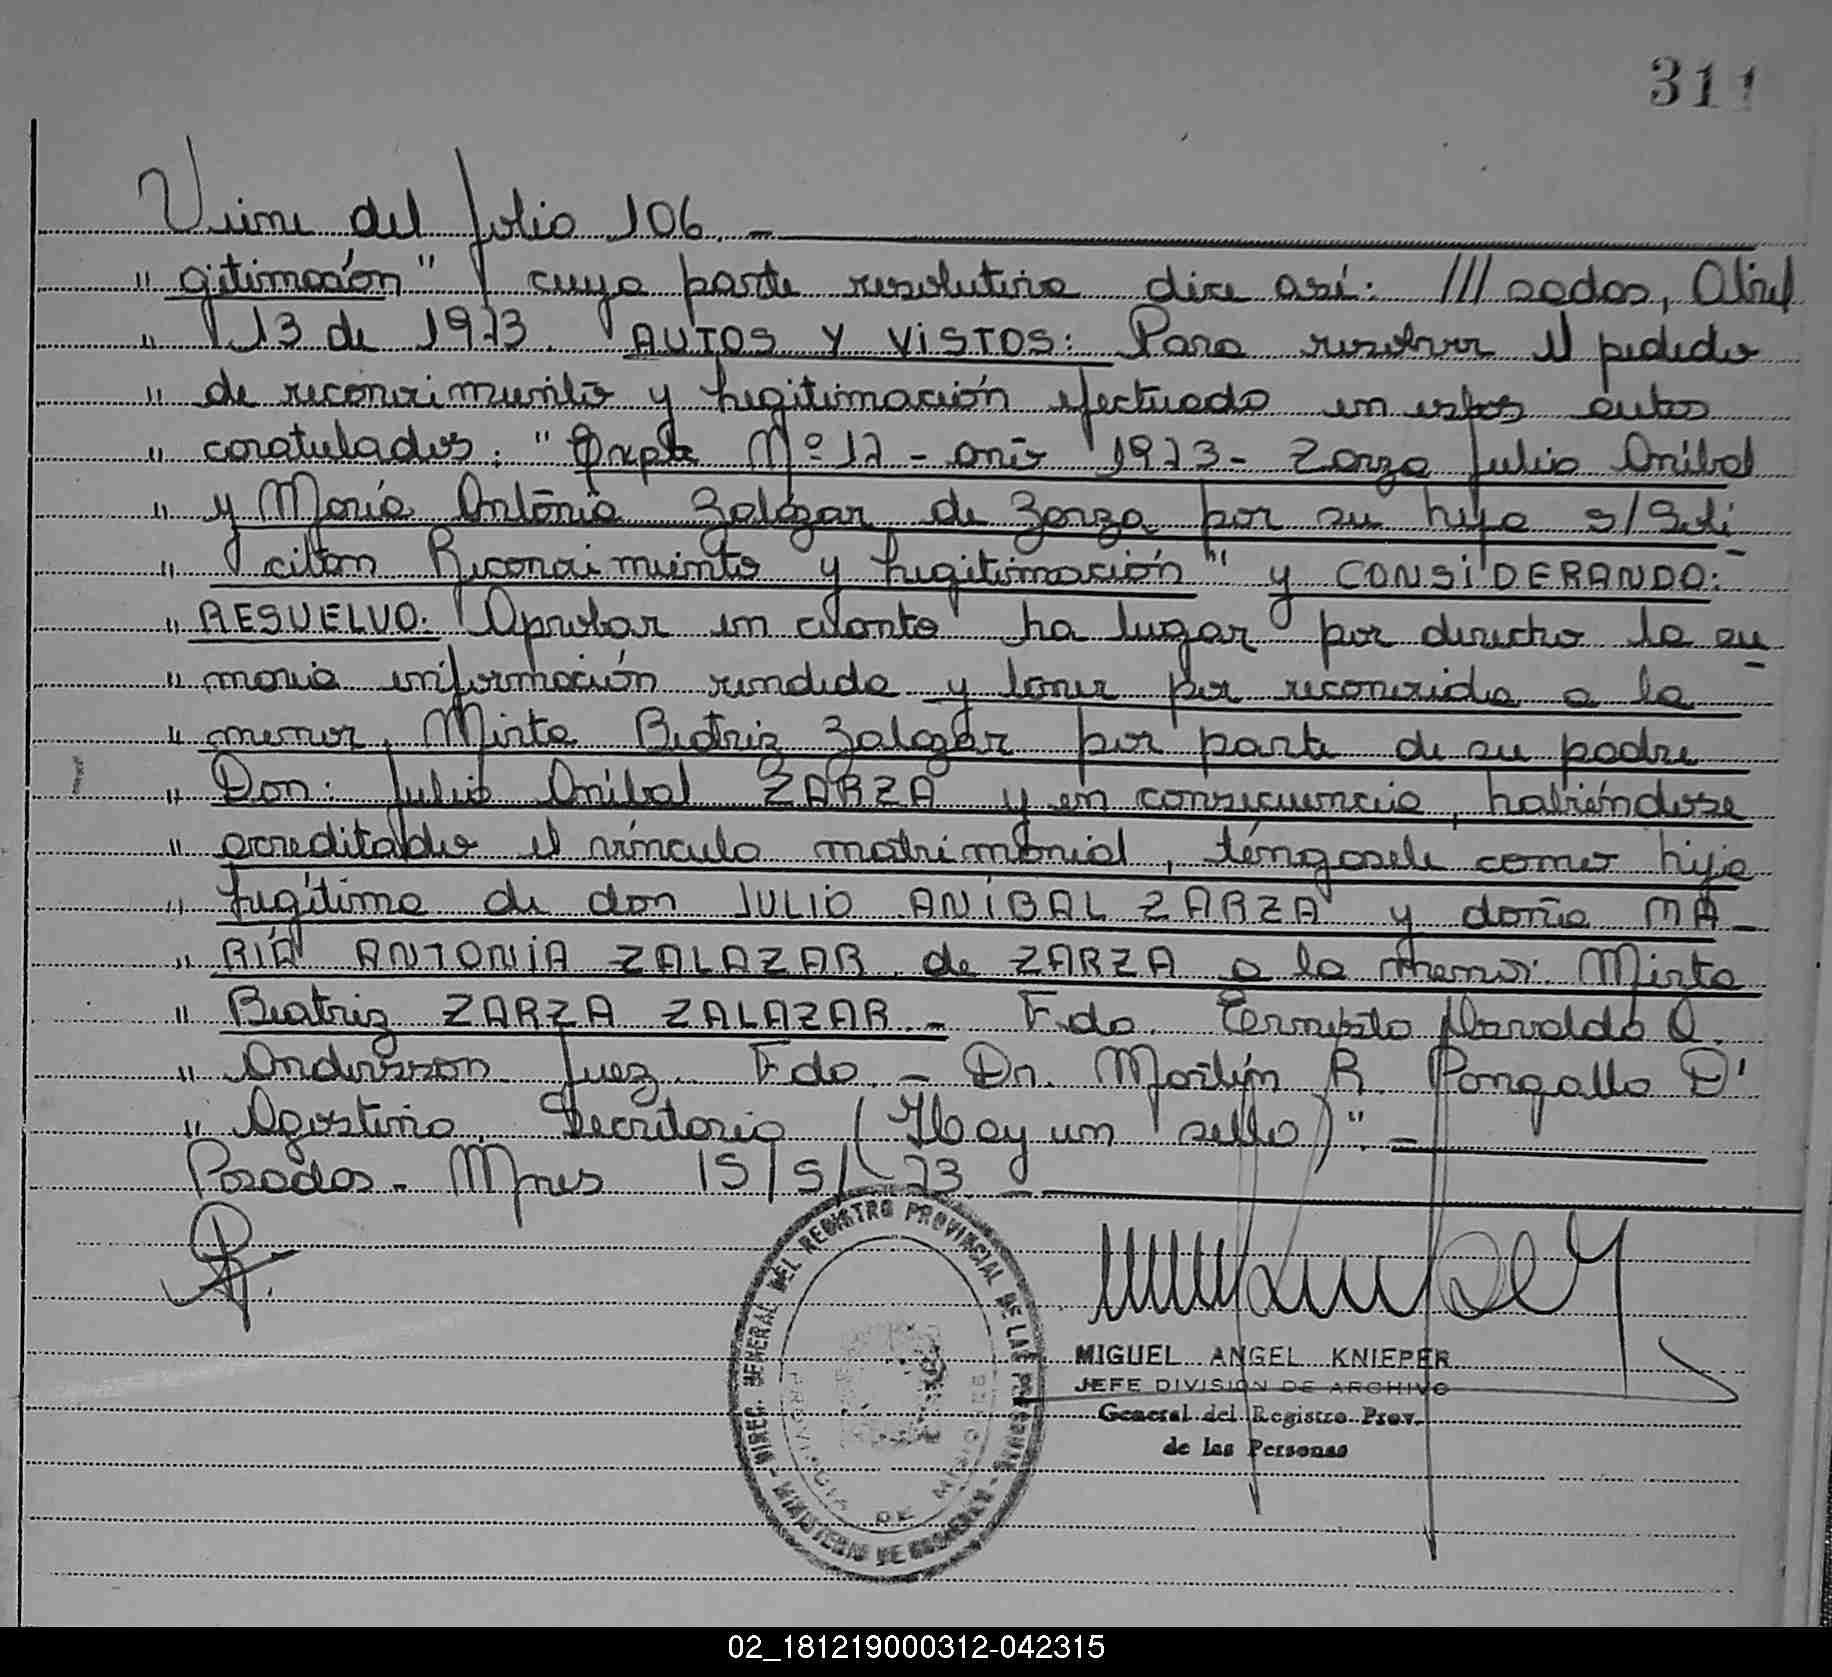 311
Viene del folio 106. -
" gitimación" cuya parte resolutiva dice así: /// sadas, Abril
" 13 de 1973. AUTOS Y VISTOS: Para resolver el pedido
" de reconocimiento y legitimación efectuado en estos autos
" caratulados: "Expte Nº 17 - año 1973 - Zarza Julio Anibal
" y María Antonia Zalazar de Zarza por su hija s/Soli
" citan Reconocimiento y legitimación" y CONSIDERANDO:
" RESUELVO: Aprobar en cuanto ha lugar por derecho la su
" maria información rendida y tener por reconocida a la
" menor, Mirta Beatriz Zalazar por parte de su padre
" Don: Julio Anibal ZARZA y en consecuencia, habiéndose
" acreditado el vínculo matrimonial, téngasele como hija
" legítima de don JULIO ANIBAL ZARZA y doña MA-
" RIA ANTONIA ZALAZAR de ZARZA a la menor: Mirta
" Beatriz ZARZA ZALAZAR.- Fdo. Osvaldo
" Andersson Juez. Fdo. - Dr. Martín R. Pangallo D'
" Agostino. Secretario (Hay un sello)". -
Posadas - Mnes 15/5/73 -
DIREC. GENERAL DEL REGISTRO PROVINCIAL DE LAS PERSONAS - MINISTERIO DE GOBIERNO -
PROVINCIA DE MISIONES
MIGUEL ANGEL KNIEPER
JEFE DIVISION DE ARCHIVO
General del Registro Prov.
de las Personas
02_181219000312-042315